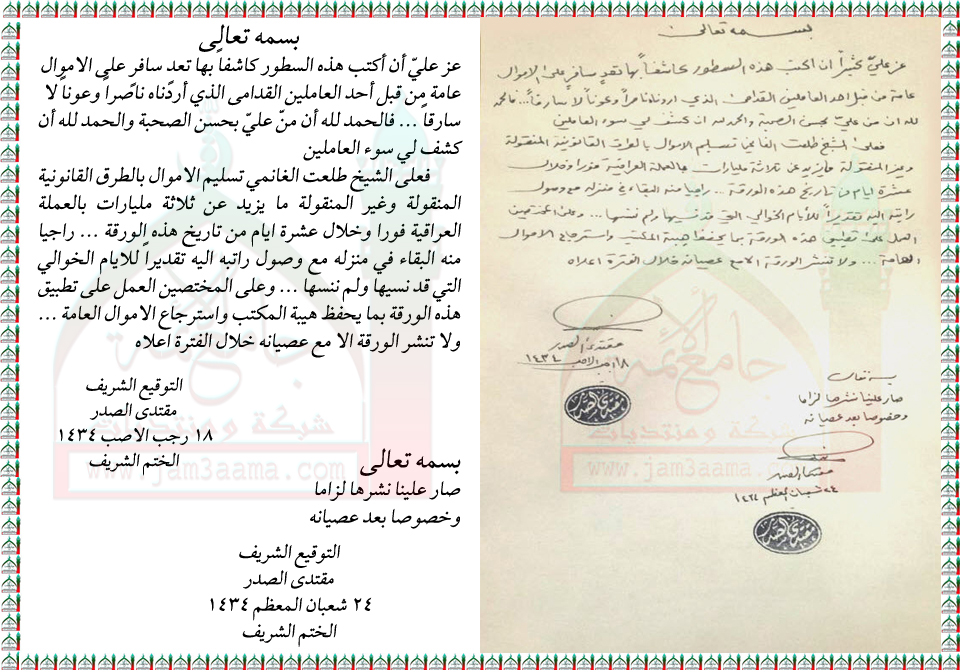 بسمه تعالى
عز عليّ أن أكتب هذه السطور كاشفاً بها تعد سافر على الاموال
عامة من قبل أحد العاملين القدامى الذي أردناه ناصراً وعوناً لا
سارقاً ... فالحمد لله أن منّ عليّ بحسن الصحبة والحمد لله أن
كشف لي سوء العاملين
فعلى الشيخ طلعت الغانمي تسليم الاموال بالطرق القانونية
المنقولة وغير المنقولة ما يزيد عن ثلاثة مليارات بالعملة
العراقية فورا وخلال عشرة ايام من تاريخ هذه الورقة ... راجيا
منه البقاء في منزله مع وصول راتبه اليه تقديراً للايام الخوالي
التي قد نسيها ولم ننسها ... وعلى المختصين العمل على تطبيق
هذه الورقة بما يحفظ هيبة المكتب واسترجاع الاموال العامة ...
ولا تنشر الورقة الا مع عصيانه خلال الفترة اعلاه
التوقيع الشريف
مقتدى الصدر
١٨ رجب الاصب ١٤٣٤
الختم الشريف
بسمه تعالى
صار علينا نشرها لزاما
وخصوصا بعد عصيانه
التوقيع الشريف
مقتدى الصدر
٢٤ شعبان المعظم ١٤٣٤
الختم الشريف
بسمه تعالى
عز عليّ كثيراً ان اكتب هذه السطور كاشفاً بها تعد سافر على الاموال
عامة من قبل احد العاملين القدامى الذي اردناه ناصراً وعوناً لا سارقاً... فالحمد
لله ان من عليّ بحسن الصحبة والحمد لله ان كشف لي سوء العاملين
فعلى الشيخ طلعت الغانمي تسليم الاموال بالطرق القانونية المنقولة
وغير المنقولة ما يزيد عن ثلاثة مليارات بالعملة العراقية فورا وخلال
عشرة ايام من تاريخ هذه الورقة ... راجيا منه البقاء في منزله مع وصول
راتبه اليه تقديراً للأيام الخوالي التي قد نسيها ولم ننسها ... وعلى المختصين
العمل على تطبيق هذه الورقة بما يحفظ هيبة المكتب واسترجاع الاموال
العامة ... ولا تنشر الورقة الا مع عصيانه خلال الفترة اعلاه
مقتدى الصدر
١٨ رجب الاصب ١٤٣٤
مقتدى الصدر
بسمه تعالى
صار علينا نشرها لزاما
وخصوصا بعد عصيانه
مقتدى الصدر
٢٤ شعبان المعظم ١٤٣٤
مقتدى الصدر
جامع الأئمة
شبكة ومنتديات
www.jam3aama.com
جامع الأئمة
شبكة ومنتديات
www.jam3aama.com